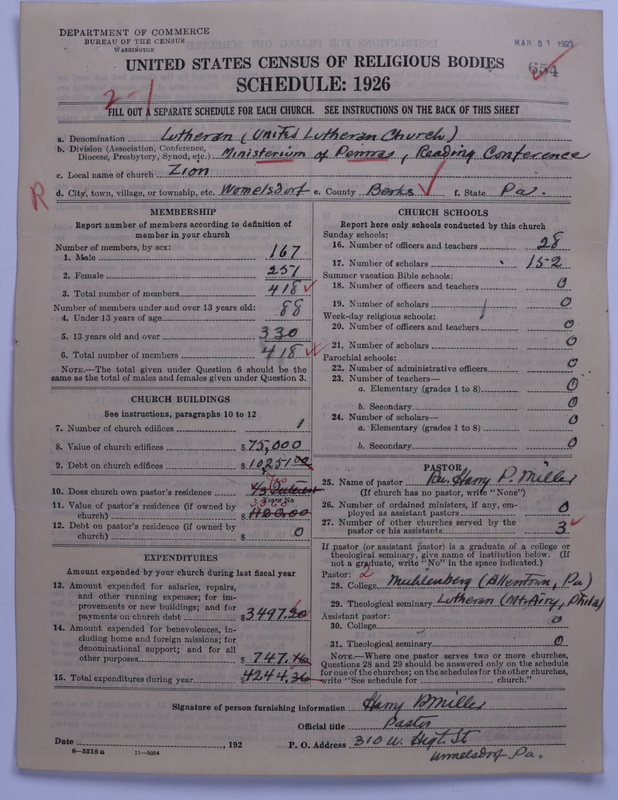 DEPARTMENT OF COMMERCE
BUREAU OF THE CENSUS
WASHINGTON
MAR 31 1927
654
UNITED STATES CENSUS OF RELIGIOUS BODIES
SCHEDULE: 1926
2-1
FILL OUT A SEPARATE SCHEDULE FOR EACH CHURCH. SEE INSTRUCTIONS ON THE BACK OF THIS SHEET
a. Denomination Lutheran (United Lutheran Church)
b. Division (Association, Conference, Diocese, Presbytery, Synod, etc.) Ministerium of Penna, Reading Conference
c. Local name of church Zion
R
d. City, town, village, or township, etc. Womelsdorf e. County Berks f. State Pa.
MEMBERSHIP
Report number of members according to definition of
member in your church
Number of members, by sex:
1. Male 167
2. Female 251
3. Total number of members 418
Number of members under and over 13 years old:
4. Under 13 years of age 88
5. 13 years old and over 330
6. Total number of members 418
NOTE.—The total given under Question 6 should be the
same as the total of males and females given under Question 3.
CHURCH BUILDINGS
See instructions, paragraphs 10 to 12
7. Number of church edifices 1
8. Value of church edifices $75,000
9. Debt on church edifices $10251.00
10. Does church own pastor's residence
Yes or No
11. Value of pastor's residence (if owned by
church) $
12. Debt on pastor's residence (if owned by
church) $ 0
EXPENDITURES
Amount expended by your church during last fiscal year
13. Amount expended for salaries, repairs,
and other running expenses; for im-
provements or new buildings; and for
payments on church debt $3497.20
14. Amount expended for benevolences, in-
cluding home and foreign missions; for
denominational support; and for all
other purposes $747.16
15. Total expenditures during year $4244.36
CHURCH SCHOOLS
Report here only schools conducted by this church
Sunday schools:
16. Number of officers and teachers 28
17. Number of scholars 152
Summer vacation Bible schools:
18. Number of officers and teachers 0
19. Number of scholars 0
Week-day religious schools:
20. Number of officers and teachers 0
21. Number of scholars 0
Parochial schools:
22. Number of administrative officers 0
23. Number of teachers—
a. Elementary (grades 1 to 8) 0
b. Secondary 0
24. Number of scholars—
a. Elementary (grades 1 to 8) 0
b. Secondary 0
PASTOR
25. Name of pastor Rev. Harry P. Miller
(If church has no pastor, write "None")
26. Number of ordained ministers, if any, em-
ployed as assistant pastors 0
27. Number of other churches served by the
pastor or his assistants 3
If pastor (or assistant pastor) is a graduate of a college or
theological seminary, give name of institution below. (If
not a graduate, write "No" in the space indicated.)
Pastor: 2
28. College Muhlenberg (Allentown, Pa)
29. Theological seminary Lutheran (Mt. Airy, Phila)
Assistant pastor:
30. College 0
31. Theological seminary 0
NOTE.—Where one pastor serves two or more churches,
Questions 28 and 29 should be answered only on the schedule
for one of the churches; on the schedules for the other churches,
write "See schedule for church."
Signature of person furnishing information Harry P Miller
Official title Pastor
Date , 192 P. O. Address 310 W. High St
Womelsdorf, Pa.
8-5318a 11-9034